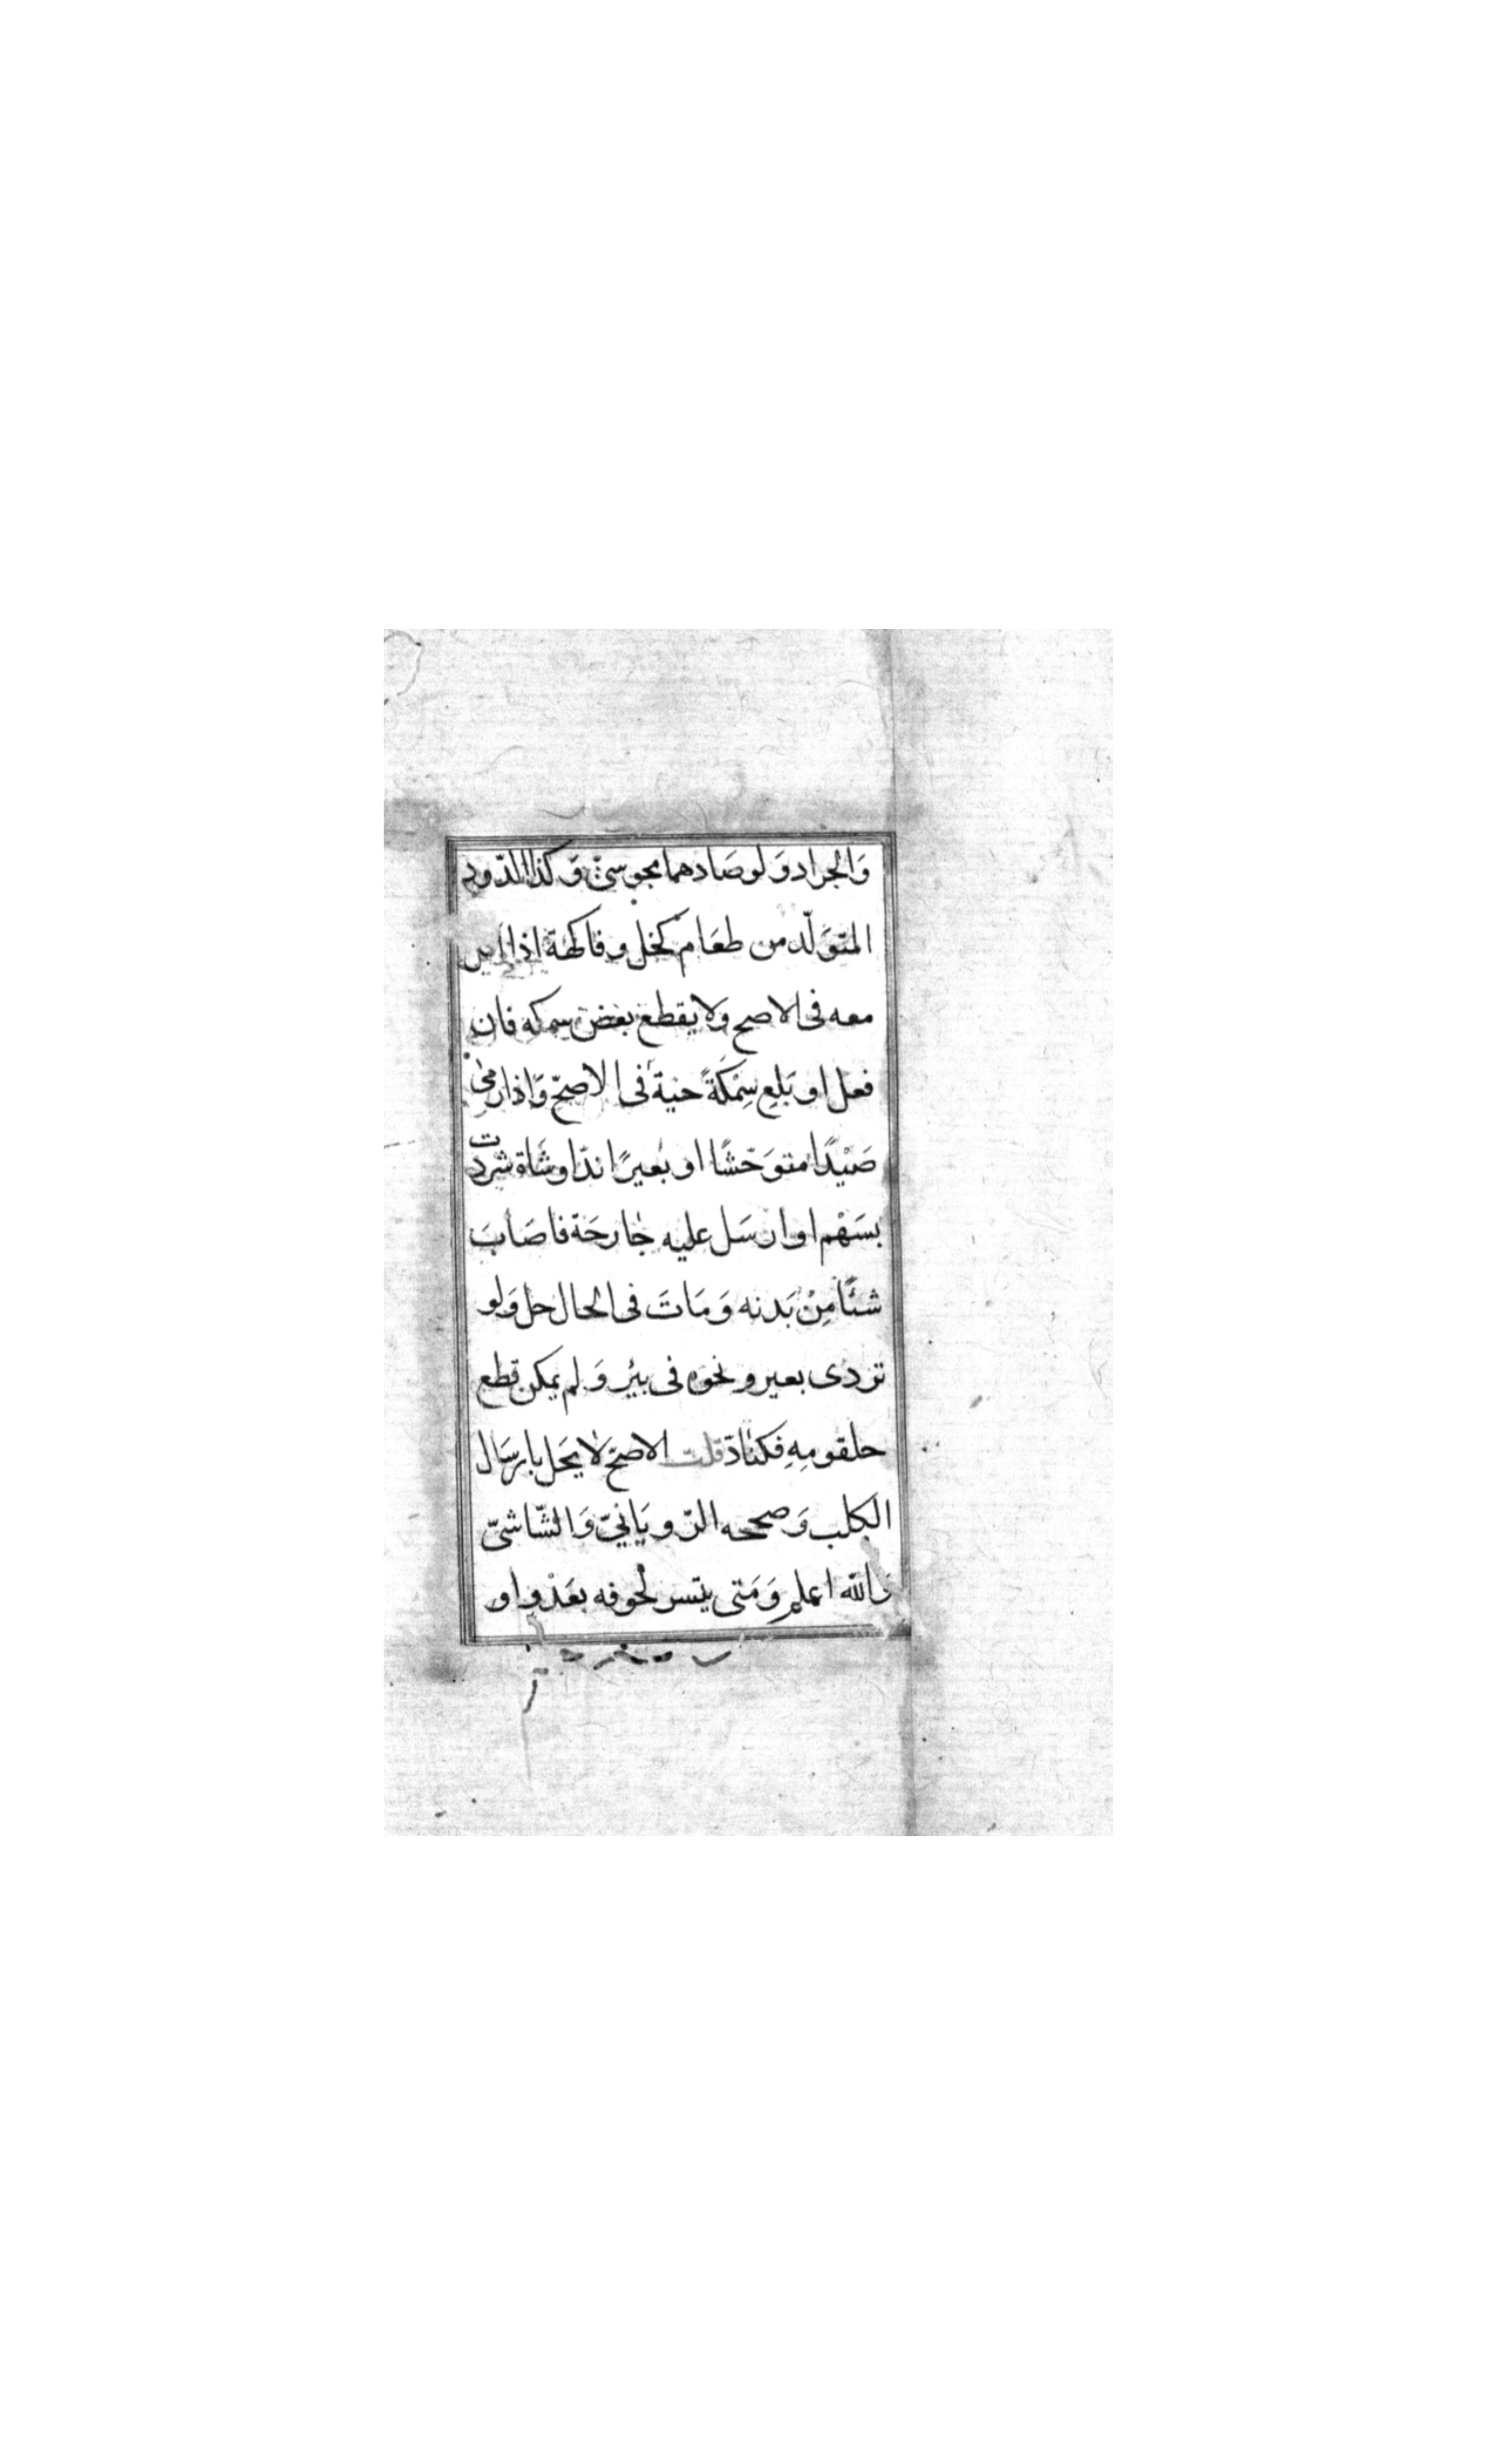 وَالجراد وَلو صَادهما مجوسىّ وَكذا الدّود
المتوَلّد من طعَام كخل وفاكهة اذا
معه فى الاصح ولا يقطع بعض سمكه فان
فعل او بَلع سِمْكَةً حية فى الاصحّ وَاذا رمىٰ
صَيْدًا متوَحّشًا او بعيرًا ندّ اوشَاة شردت
بسَهْم او ارسَل عليه جَارحَة فاصَابَ
شئًا مِنْ بَدنه وَمَاتَ فى الحال حل وَلو
تردى بعير ونحوه فى بئر وَلم يمكن قطع
حلقومِهِ فكنادّ قلت الاصحّ لا يحَل بارسَال
الكلب وَصححه الرّويَانىّ وَالشّاشىّ
وَالله اعلم وَمَتى يتسر لحوقه بعَدْو او